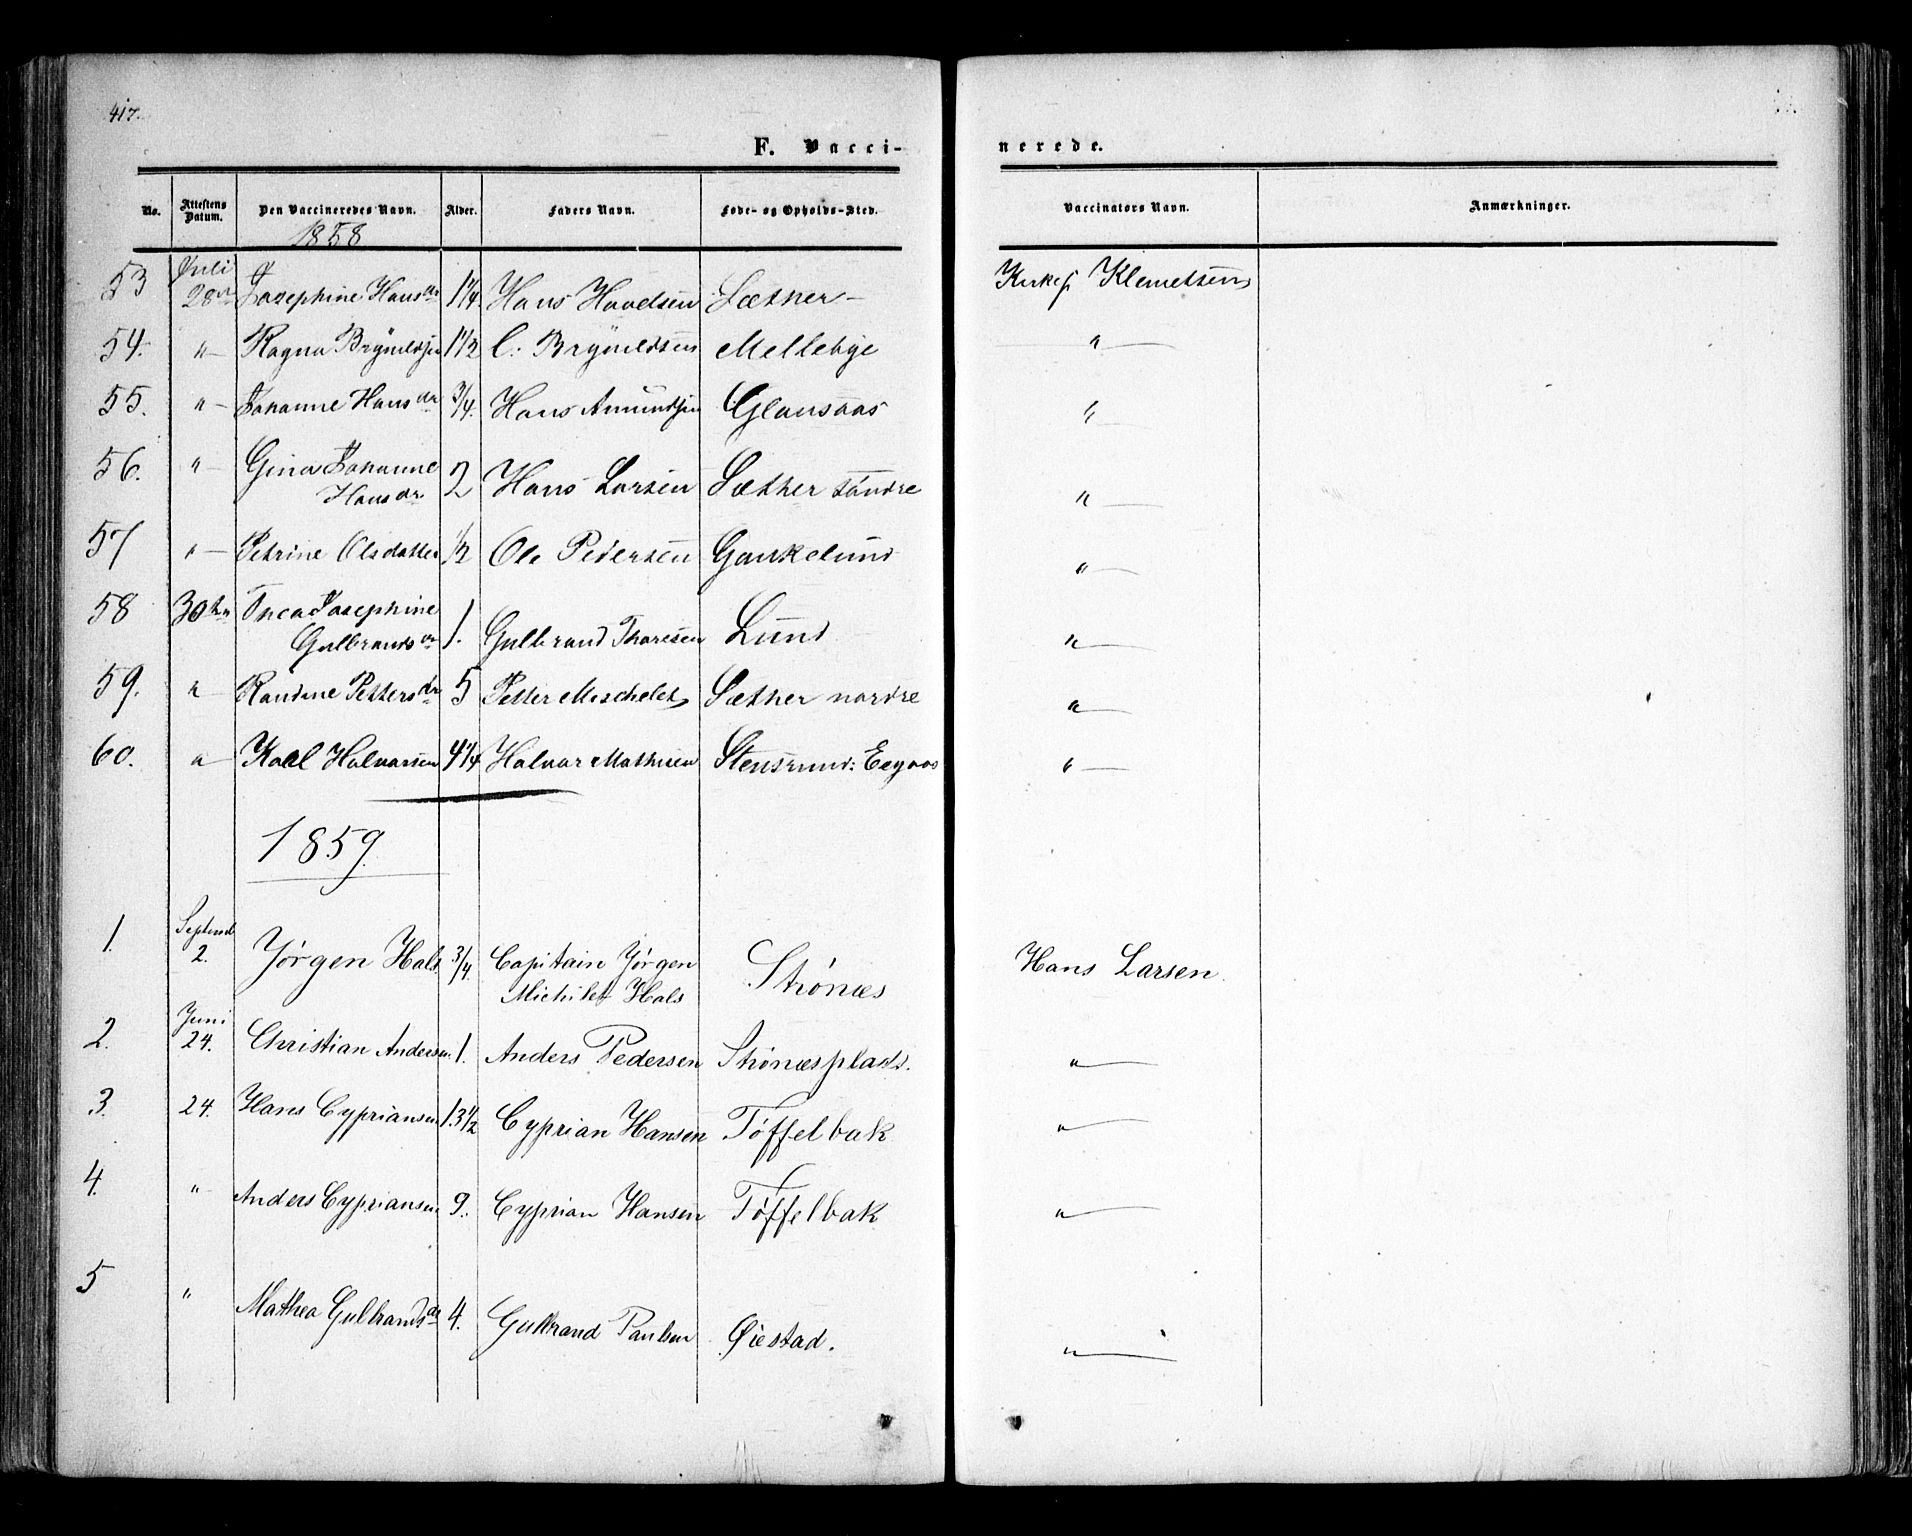 417.
F. Vacci-
nerede.
No. Attestens Datum. Den Vaccineredes Navn. Alder. Faders Navn. Føde- og Opholds-Sted. Vaccinators Navn. Anmærkninger.
1858
53 Juli 28de Josephine Hansdr 1 1/4 Hans Hansen Sæther Kirkes. Klemetsen
54. " Ragna Bryneldsen 1 1/2 C. Bryneldsen Mellebye "
55. " Johanne Hansdr 3/4. Hans Amundsen Glausaas "
56. " Gina Johanne
Hansdr 2 Hans Larsen Sæther søndre "
57 " Petrine Olsdatter 1/2 Ole Pedersen Gaukelund "
58 30te Josephine
Gulbrandsdr 1. Gulbrand Thoresen Lund "
59. " Randine Pettersdr 5 Petter Michelet Sæther nordre "
60. " Karl Halvorsen 4 1/4 Halvor Mathisen Stensrund: "
1859.
1. Septemb 2. Jørgen Hals 3/4. Capitain Jørgen
Michelet Hals Strønæs Hans Larsen.
2. Juni 24. Christian Andersen 1. Anders Pedersen Strønæsplads. "
3. 24. Hans Cypriansen 13 1/2 Cyprian Hansen Tøffelbak "
4. " Anders Cypriansen 9. Cyprian Hansen Tøffelbak "
5 " Mathea Gulbrandsdr 4. Gulbrand Paulsen Øiestad. "